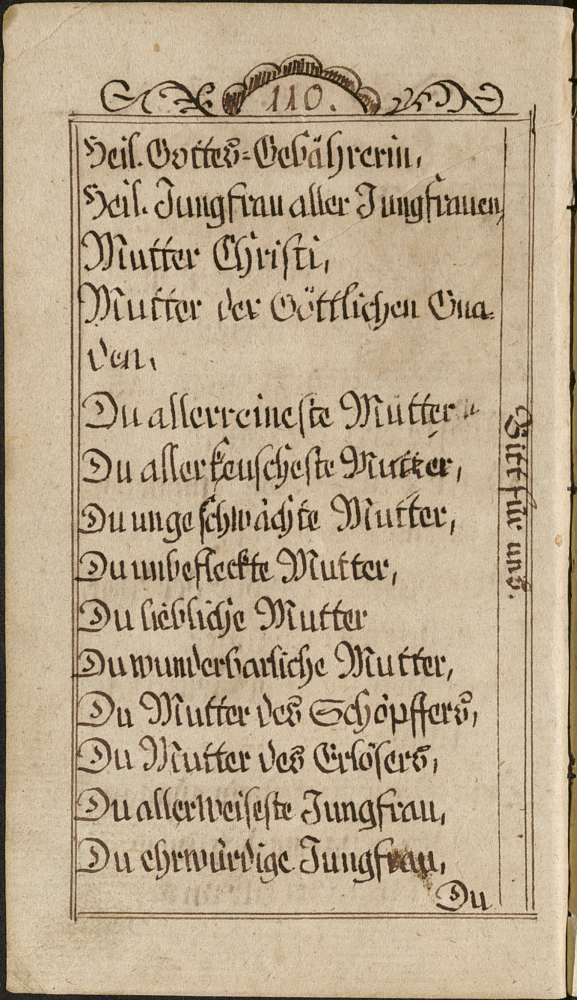 110.
Heil. Gottes=Gebährerin,
Heil. Jungfrau aller Jungfrauen,
Mutter Christi,
Mutter der Göttlichen Gna=
den,
Du allerreineste Mutter,
Du allerkeuscheste Mutter,
Du ungeschwächte Mutter,
Du unbefleckte Mutter,
Du liebliche Mutter
Du wunderbarliche Mutter,
Du Mutter des Schöpffers,
Du Mutter des Erlösers,
Du allerweiseste Jungfrau,
Du ehrwürdige Jungfrau,
Du
Bitt für uns.